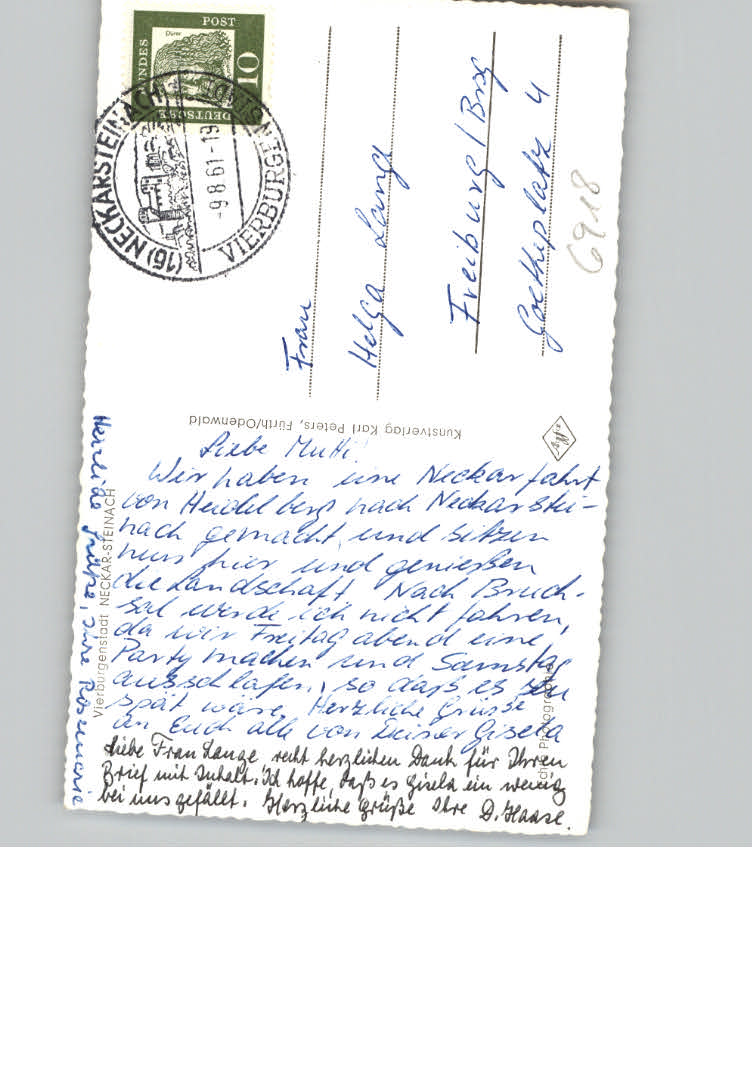 POST
Dürer
BUNDES
10
DEUTSCHE
(16) NECKARSTEINACH
-9.8.61-19
VIERBURGENSTADT
Frau
Helga Lange
Freiburg / Brsg
Goetheplatz 4
6918
Kunstverlag Karl Peters, Fürth/Odenwald
Vierburgenstadt NECKAR-STEINACH
Liebe Mutti!
Wir haben eine Neckarfahrt
von Heidelberg nach Neckarstei-
nach gemacht und sitzen
nun hier und genießen
die Landschaft. Nach Bruch-
sal werde ich nicht fahren,
da wir Freitag abend eine
Party machen und Samstag
ausschlafen, so daß es zu
spät wäre. Herzliche Grüsse
an Euch alle von Deiner Gisela
Liebe Frau Lange, recht herzlichen Dank für Ihren
Brief mit Inhalt. Ich hoffe, daß es Gisela ein wenig
bei uns gefällt. Herzliche Grüße Ihre D. Haase.
Herzliche Grüße, Ihre Rosemarie
Photographie